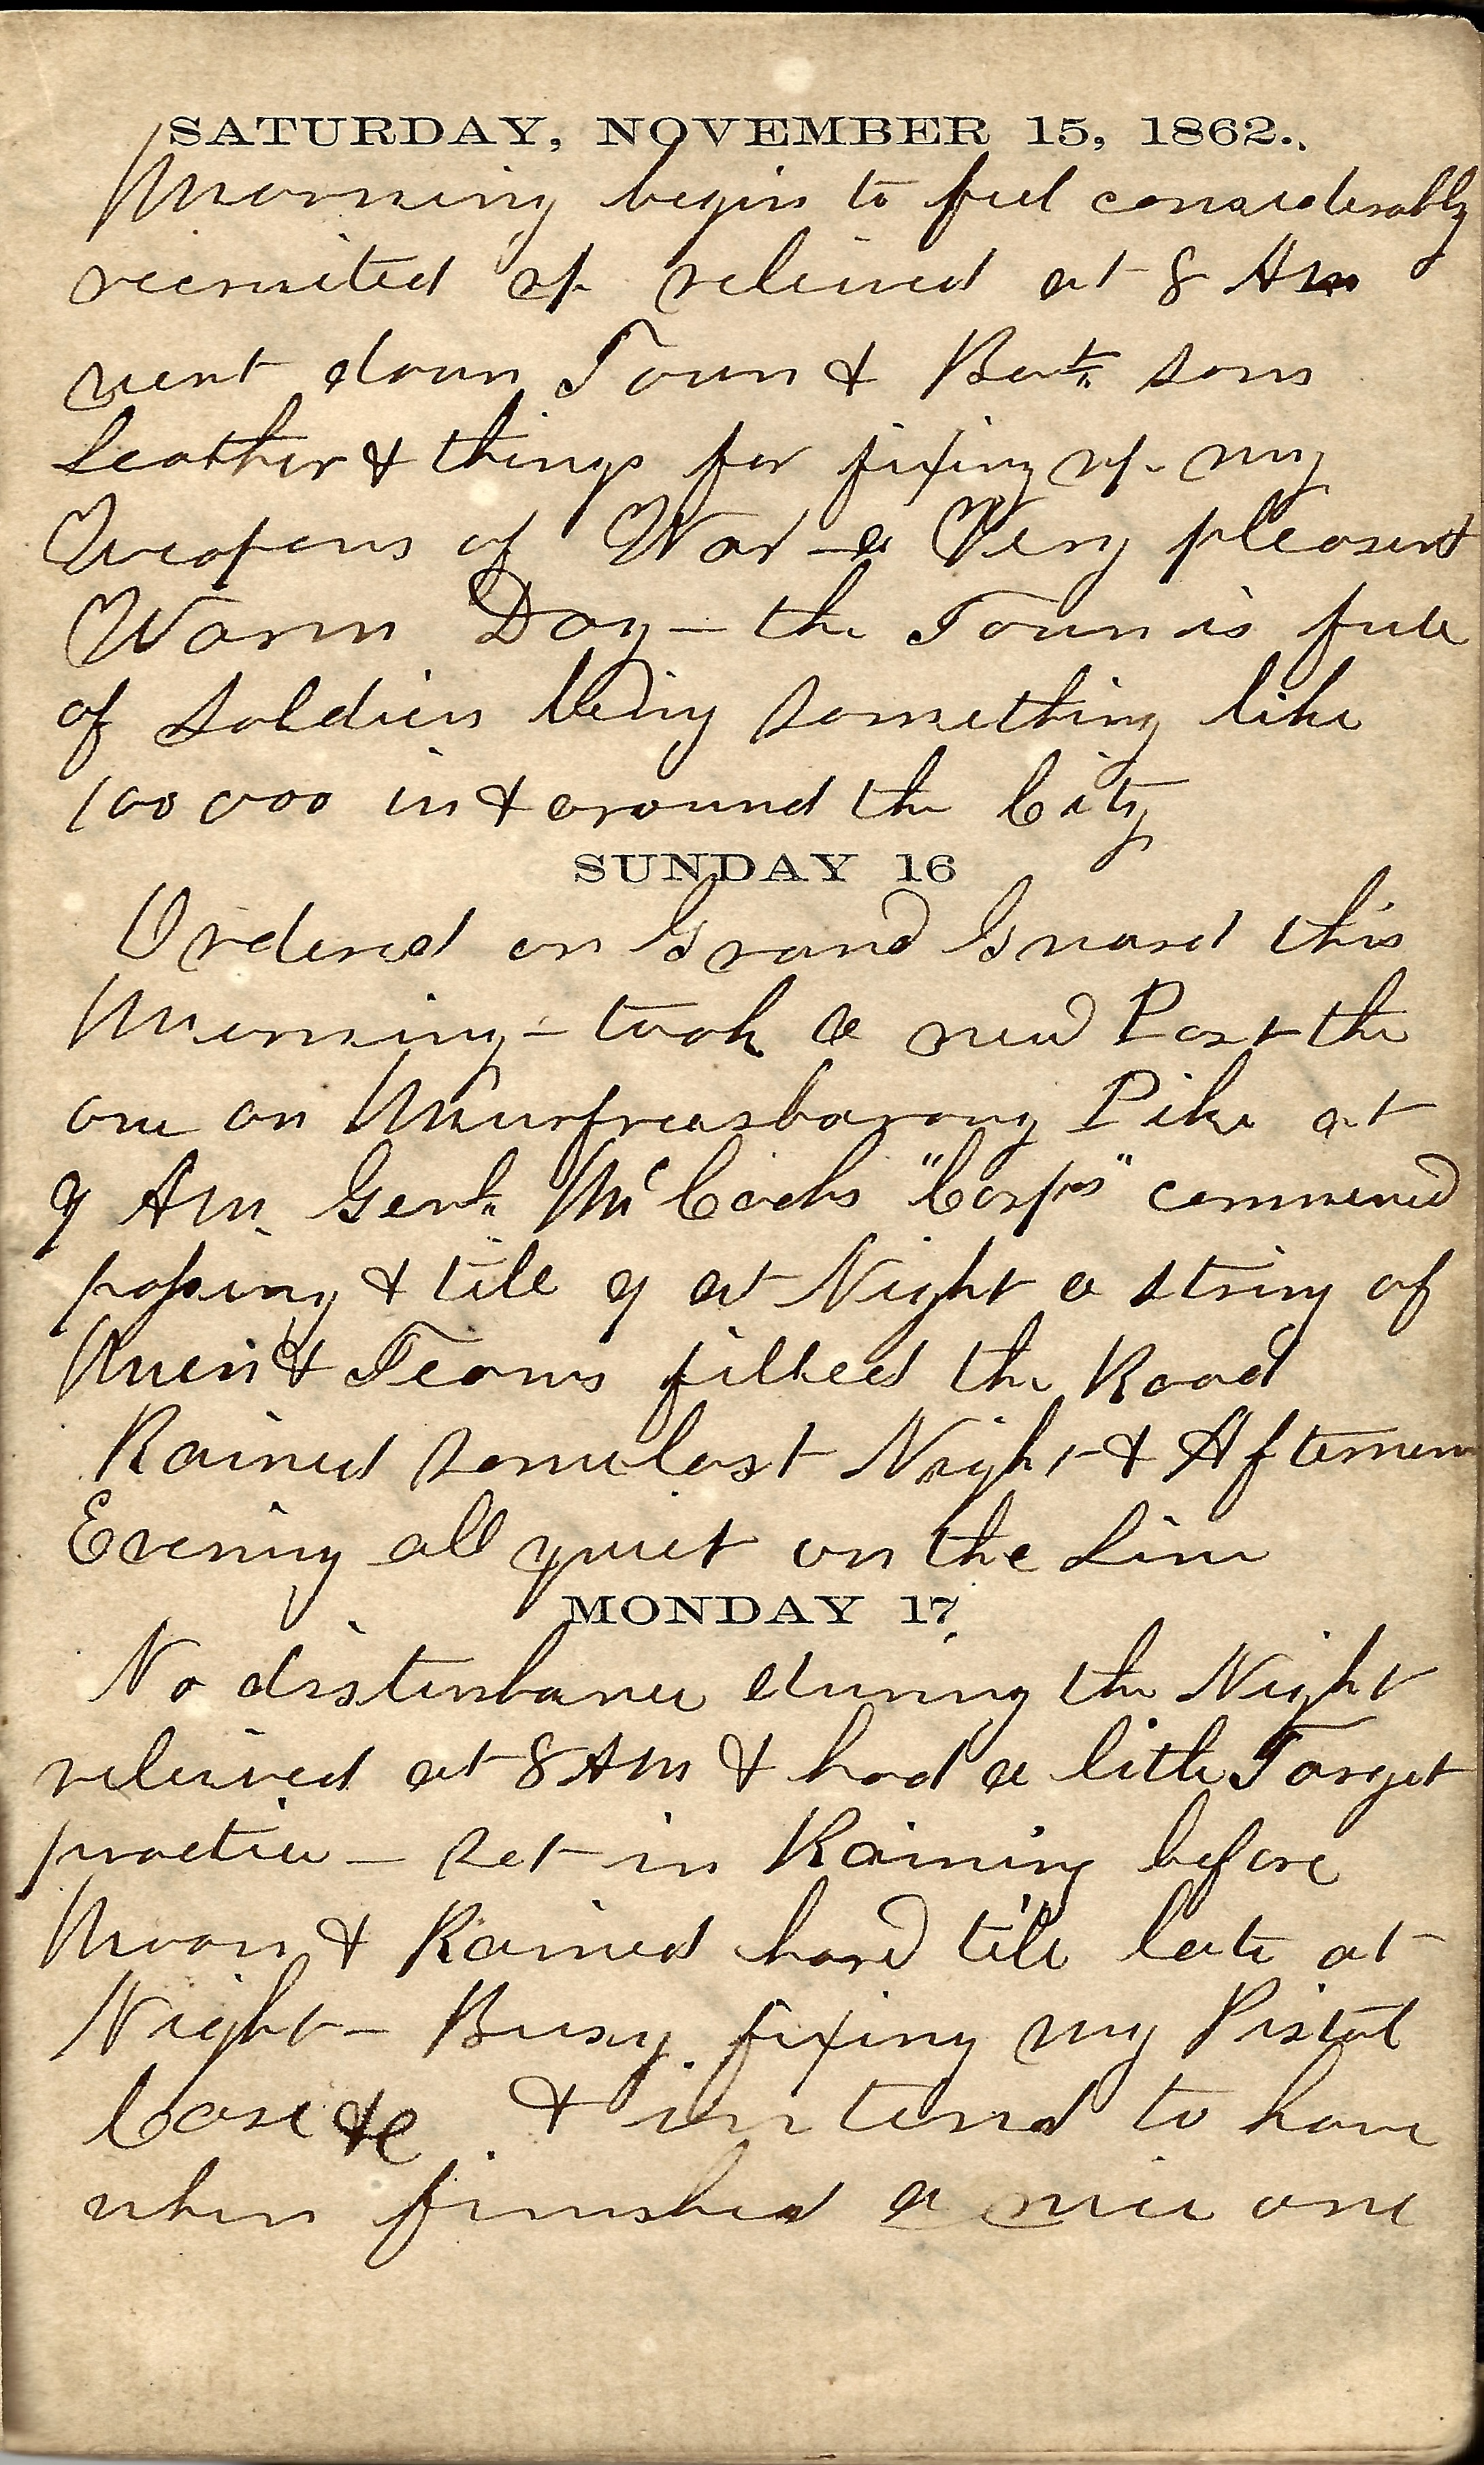 SATURDAY, NOVEMBER 15, 1862.
Morning begin to feel considerably
recruited up relieved at 8 Am
went down Town & Bot. som
Leather & things for fixing up my
Weapons of War – a Very pleasant
Warm Day – the Town is full
of Soldiers being something like
100 000 in & around the City
SUNDAY 16
Ordered on Grand Guard this
Morning – took a new Post the
one on Murfreasborouy Pike at
9 Am. Genl. McCooks "Corps" commened
passing & till 9 at Night a string of
Men & Teams filled the Road
Rained some last Night & Afternoon
Evening all quiet on the Line
MONDAY 17
No disturbance during the Night
relieved at 8 Am & had a little Target
practice – set in Raining before
Noon & Rained hard till late at
Night – Busy fixing my Pistol
Case &c & intend to have
when finished a nice one